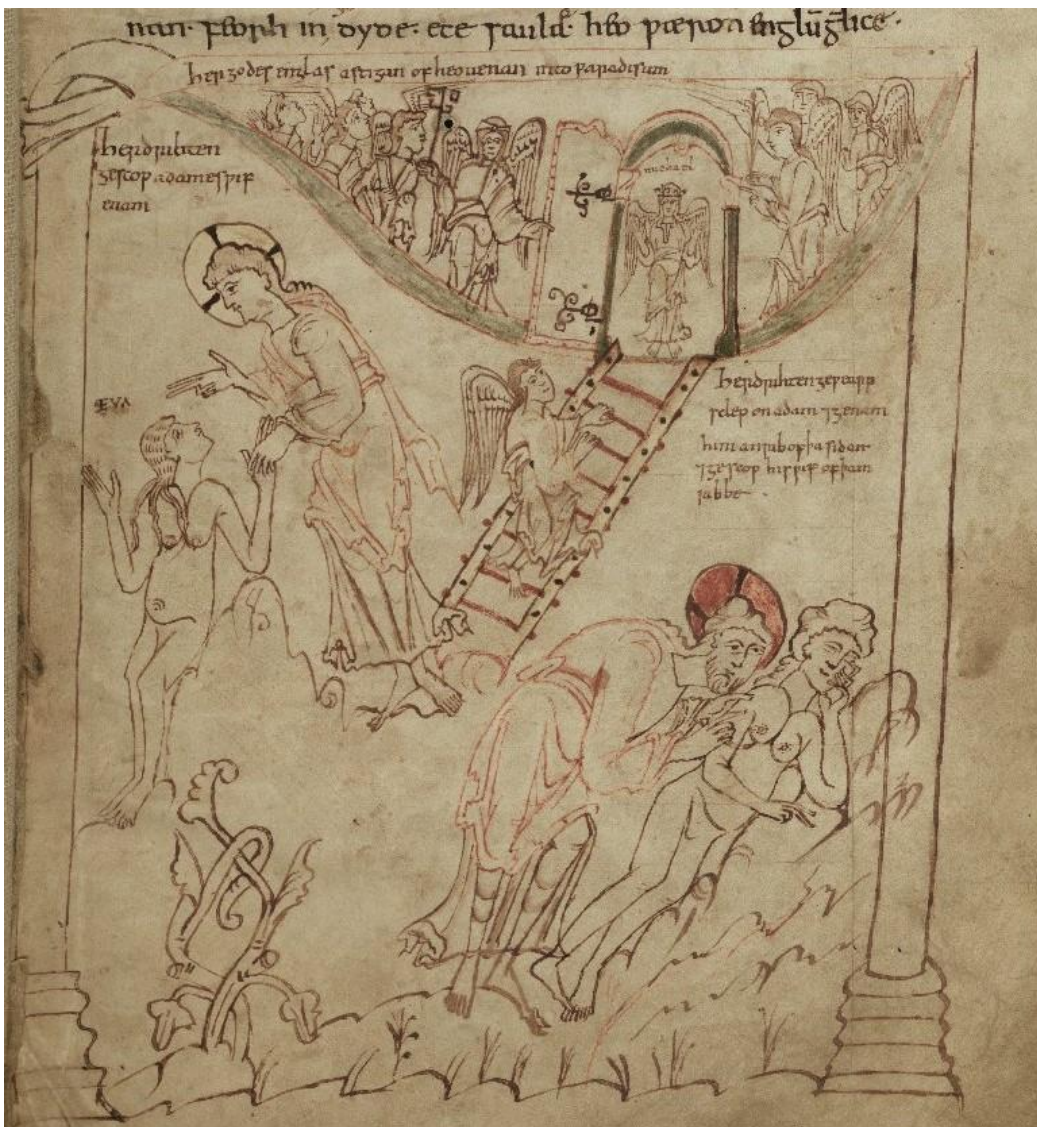 nan· ƿeorh in dyde· ece saula· heo ƿæron englū gelice·
her godes englas astigan of heouenan into paradisum
her drihten
gescop adames ƿif
euam
michael
EVA
her drihten geƿearp
slep on adam ⁊ genam
him an rib of þa sidan
⁊ gescop his ƿif of þam
ribbe·